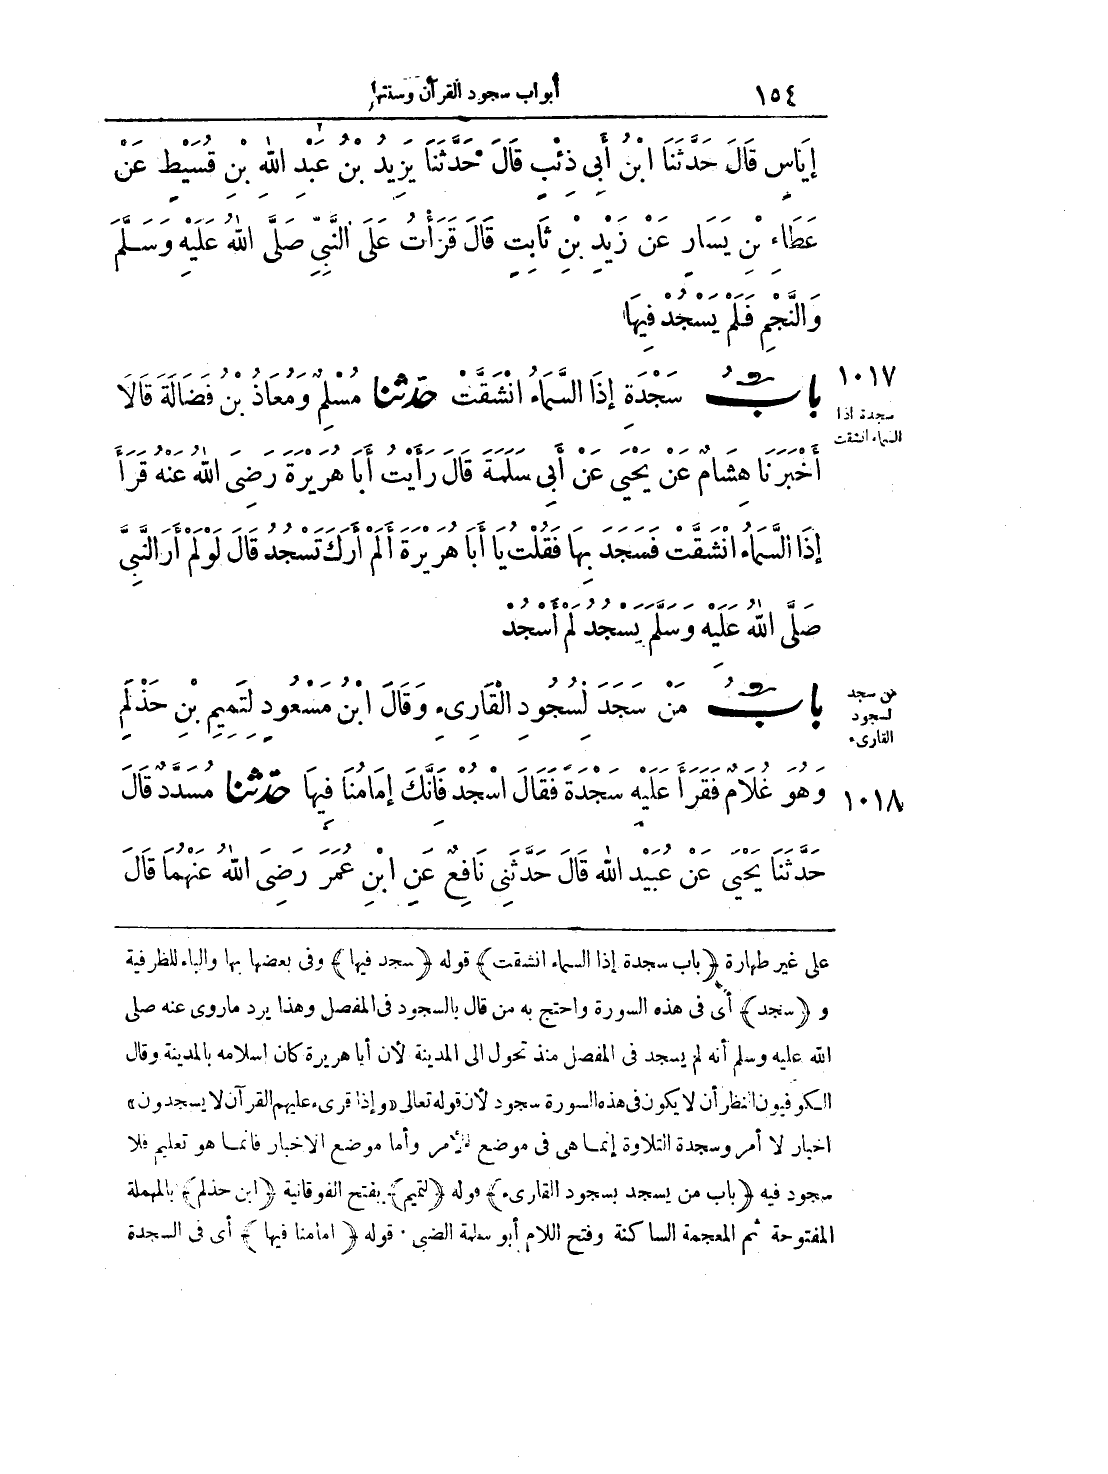 ١٥٤ أبواب سجود القرآن وسنتها
إِيَاسٍ قَالَ حَدَّثَنَا ابْنُ أَبِي ذِئْبٍ قَالَ حَدَّثَنَا يَزِيدُ بْنُ عَبْدِ اللهِ بْنِ قُسَيْطٍ عَنْ
عَطَاءِ بْنِ يَسَارٍ عَنْ زَيْدِ بْنِ ثَابِتٍ قَالَ قَرَأْتُ عَلَى النَّبِيِّ صَلَّى اللهُ عَلَيْهِ وَسَلَّمَ
وَالنَّجْمِ فَلَمْ يَسْجُدْ فِيهَا
١٠١٧ بَابُ سَجْدَةِ إِذَا السَّمَاءُ انْشَقَّتْ حَدَّثَنَا مُسْلِمٌ وَمُعَاذُ بْنُ فَضَالَةَ قَالَا
سجدة اذا
السماء انشقت
أَخْبَرَنَا هِشَامٌ عَنْ يَحْيَى عَنْ أَبِي سَلَمَةَ قَالَ رَأَيْتُ أَبَا هُرَيْرَةَ رَضِيَ اللهُ عَنْهُ قَرَأَ
إِذَا السَّمَاءُ انْشَقَّتْ فَسَجَدَ بِهَا فَقُلْتُ يَا أَبَا هُرَيْرَةَ أَلَمْ أَرَكَ تَسْجُدُ قَالَ لَوْ لَمْ أَرَ النَّبِيَّ
صَلَّى اللهُ عَلَيْهِ وَسَلَّمَ يَسْجُدُ لَمْ أَسْجُدْ
بَابُ مَنْ سَجَدَ لِسُجُودِ الْقَارِىءِ وَقَالَ ابْنُ مَسْعُودٍ لِتَمِيمِ بْنِ حَذْلَمٍ
من سجد
لسجود
القارىء
١٠١٨ وَهُوَ غُلَامٌ فَقَرَأَ عَلَيْهِ سَجْدَةً فَقَالَ اسْجُدْ فَإِنَّكَ إِمَامُنَا فِيهَا حَدَّثَنَا مُسَدَّدٌ قَالَ
حَدَّثَنَا يَحْيَى عَنْ عُبَيْدِ اللهِ قَالَ حَدَّثَنِي نَافِعٌ عَنِ ابْنِ عُمَرَ رَضِيَ اللهُ عَنْهُمَا قَالَ
على غير طهارة ﴿باب سجدة إذا السماء انشقت﴾ قوله ﴿سجد فيها﴾ وفى بعضها بها والباء للظرفية
و ﴿سنجد﴾ أى فى هذه السورة واحتج به من قال بالسجود فى المفصل وهذا يرد ماروى عنه صلى
الله عليه وسلم أنه لم يسجد فى المفصل منذ تحول الى المدينة لأن أبا هريرة كان اسلامه بالمدينة وقال
الكوفيون النظر أن لا يكون فى هذه السورة سجود لأن قوله تعالى «وإذا قرىء عليهم القرآن لا يسجدون»
اخبار لا أمر وسجدة التلاوة إنما هى فى موضع الأمر وأما موضع الاخبار فانما هو تعليم فلا
سجود فيه ﴿باب من يسجد بسجود القارىء﴾ قوله ﴿لتميم﴾ بفتح الفوقانية ﴿ابن حذلم﴾ بالمهملة
المفتوحة ثم المعجمة الساكنة وفتح اللام أبو سلمة الضبى . قوله ﴿امامنا فيها﴾ أى فى السجدة